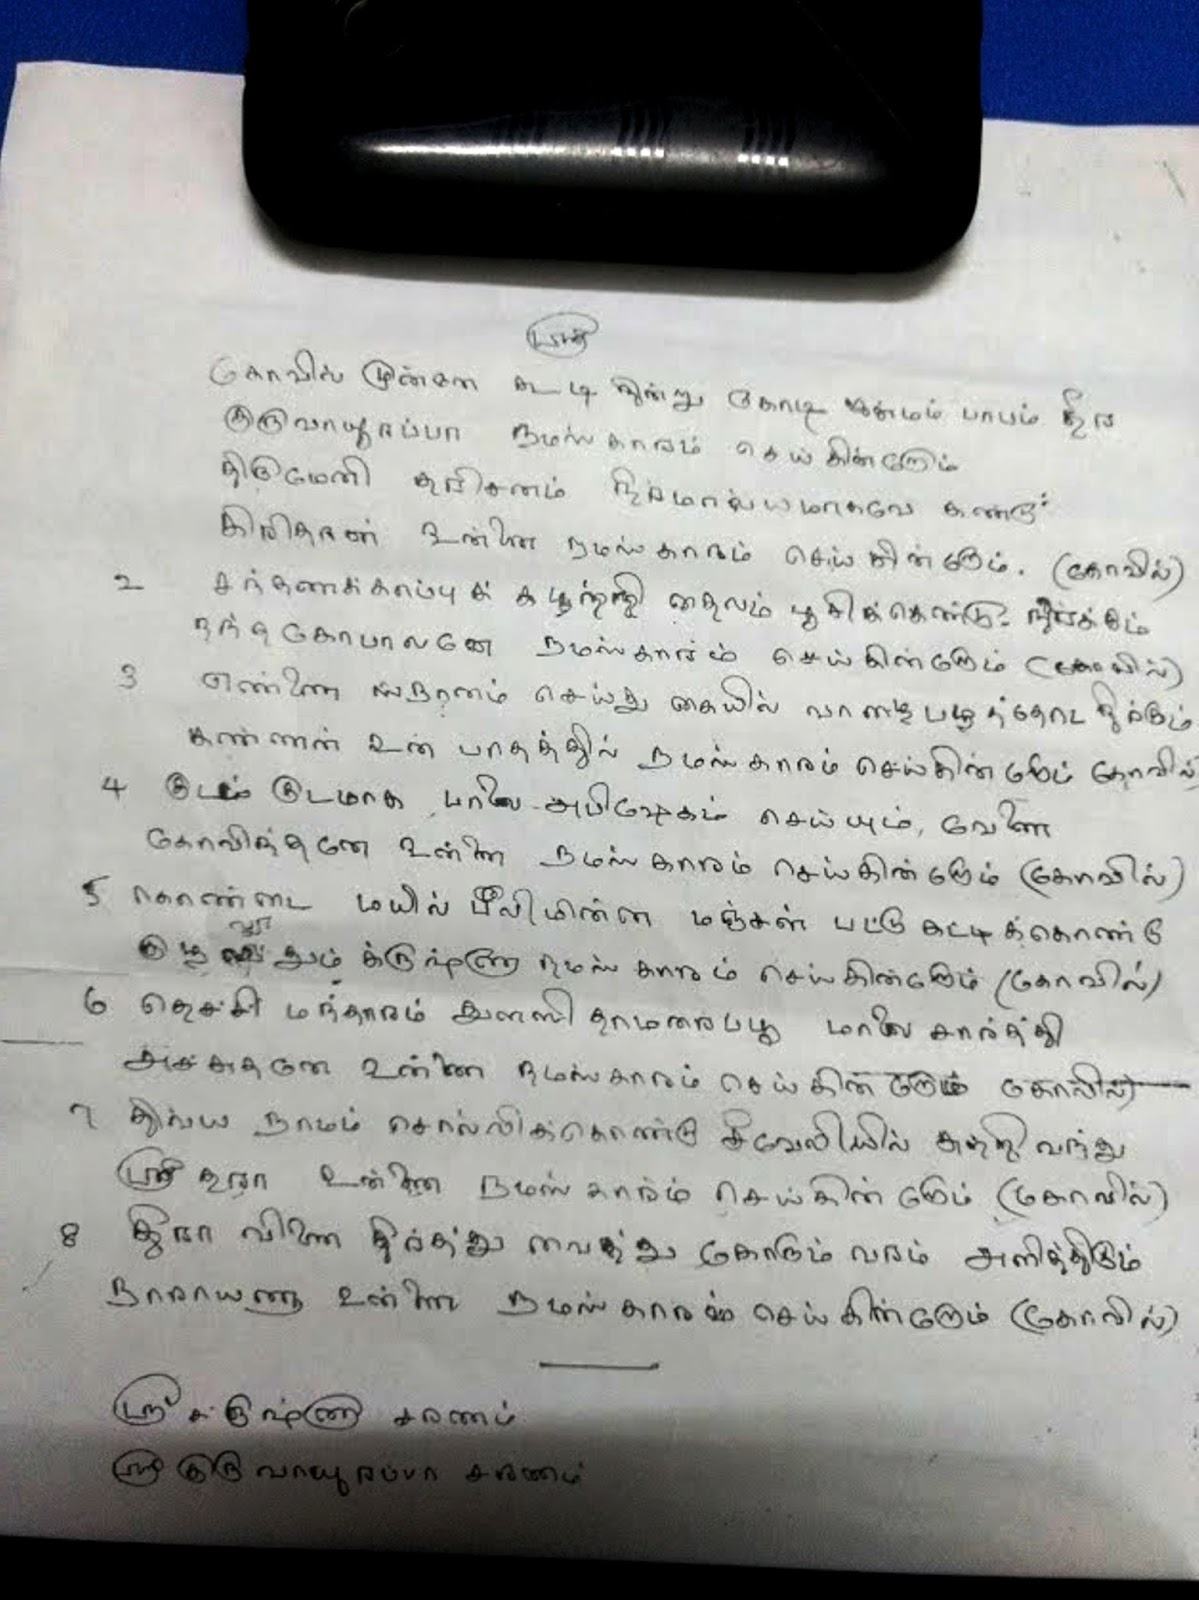 கோவில் முன்னே கூடி நின்று கோடி ஜன்மம் பாபம் தீர
குருவாயூரப்பா நமஸ்காரம் செய்கின்றோம்
திருமேனி தரிசனம் நிர்மால்யமாகவே கண்டு
கிரிதரன் உன்னை நமஸ்காரம் செய்கின்றோம். (கோவில்)
2 சந்தணக்காப்புக் கழற்றி தைலம் பூசிக்கொண்டு நிற்கும்
நந்தகோபாலனே நமஸ்காரம் செய்கின்றோம் (கோவில்)
3 எண்ணை ஸ்நானம் செய்து கையில் வாழை பழத்தோட நிற்கும்
கண்ணன் உன் பாதத்தில் நமஸ்காரம் செய்கின்றோம் கோவில்
4 குடம் குடமாக பாலை அபிஷேகம் செய்யும் வேளை
கோவிந்தனே உன்னை நமஸ்காரம் செய்கின்றோம் (கோவில்)
5 கொண்டை மயில் பீலிமின்ன மஞ்சள் பட்டு கட்டிக்கொண்டு
குழலூதும் க்ருஷ்ணா நமஸ்காரம் செய்கின்றோம் (கோவில்)
6 தெச்சி மந்தாரம் துளஸி தாமரைப்பூ மாலை சார்த்தி
அச்சுதனே உன்னை நமஸ்காரம் செய்கின்றோம் கோவில்)
7 திவ்ய நாமம் சொல்லிக்கொண்டு சீவேலியில் சுற்றி வந்து
ஸ்ரீதரா உன்னை நமஸ்காரம் செய்கின்றோம் (கோவில்)
8 தீரா வினை தீர்த்து வைத்து கோரும் வரம் அளித்திடும்
நாராயணா உன்னை நமஸ்காரம் செய்கின்றோம் (கோவில்)
ஸ்ரீ க்ருஷ்ணா சரணம்
ஸ்ரீ குருவாயூரப்பா சரணம்